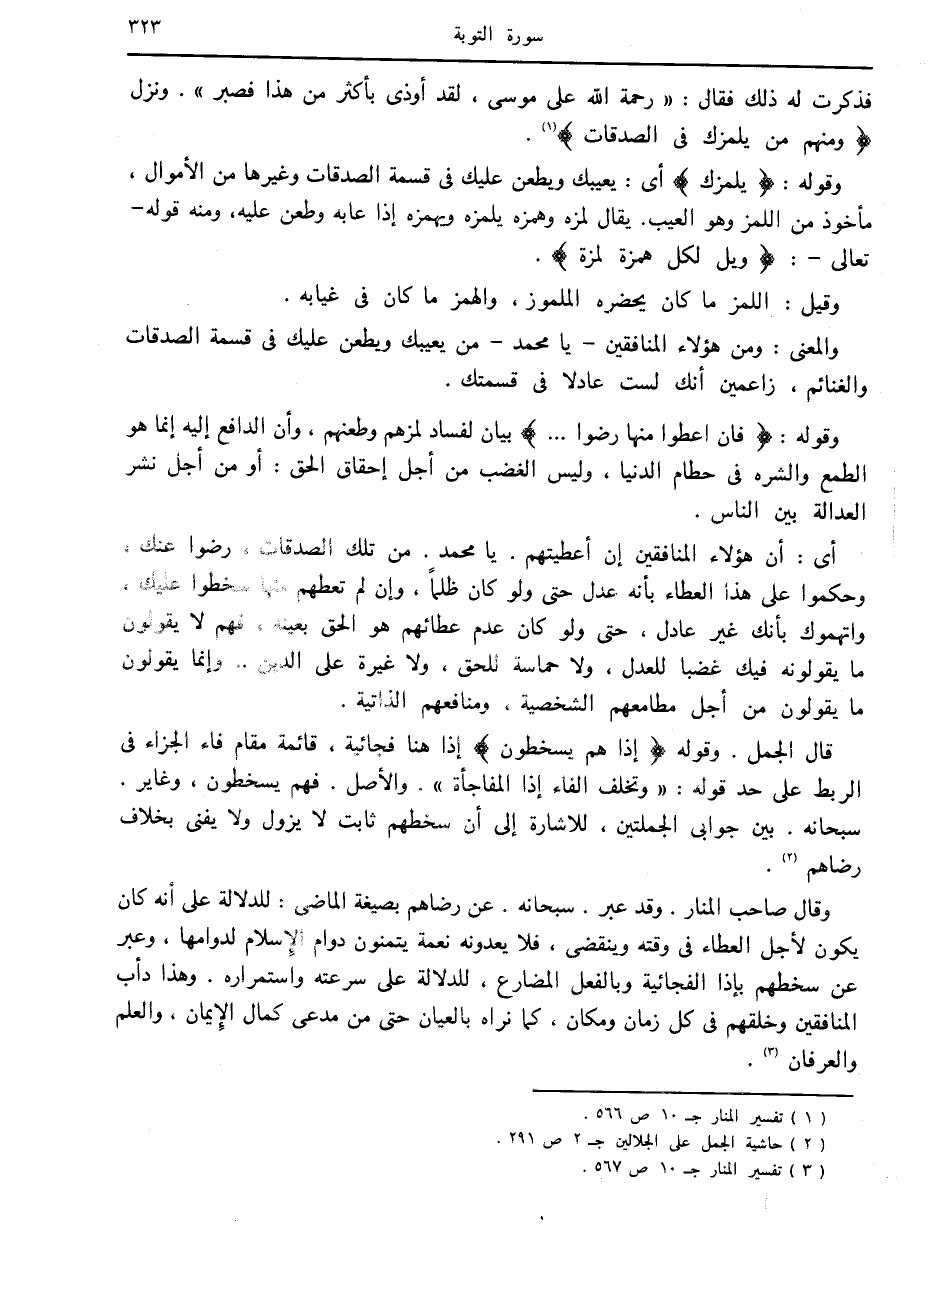 سورة التوبة
٣٢٣
فذكرت له ذلك فقال : « رحمة الله على موسى ، لقد أوذى بأكثر من هذا فصبر » . ونزل
﴿ ومنهم من يلمزك فى الصدقات ﴾(١) .
وقوله : ﴿ يلمزك ﴾ أى : يعيبك ويطعن عليك فى قسمة الصدقات وغيرها من الأموال ،
مأخوذ من اللمز وهو العيب. يقال لمزه وهمزه يلمزه ويهمزه إذا عابه وطعن عليه، ومنه قوله-
تعالى - : ﴿ ويل لكل همزة لمزة ﴾ .
وقيل : اللمز ما كان يحضره الملموز ، والهمز ما كان فى غيابه .
والمعنى : ومن هؤلاء المنافقين - يا محمد - من يعيبك ويطعن عليك فى قسمة الصدقات
والغنائم ، زاعمين أنك لست عادلا فى قسمتك .
وقوله : ﴿ فان اعطوا منها رضوا ... ﴾ بيان لفساد لمزهم وطعنهم ، وأن الدافع إليه إنما هو
الطمع والشره فى حطام الدنيا ، وليس الغضب من أجل إحقاق الحق : أو من أجل نشر
العدالة بين الناس .
أى : أن هؤلاء المنافقين إن أعطيتهم . يا محمد . من تلك الصدقات ، رضوا عنك ،
وحكموا على هذا العطاء بأنه عدل حتى ولو كان ظلماً ، وإن لم تعطهم منها سخطوا عليك ،
واتهموك بأنك غير عادل ، حتى ولو كان عدم عطائهم هو الحق بعينه ، فهم لا يقولون
ما يقولونه فيك غضبا للعدل ، ولا حماسة للحق ، ولا غيرة على الدين .. وإنما يقولون
ما يقولون من أجل مطامعهم الشخصية ، ومنافعهم الذاتية .
قال الجمل . وقوله ﴿ إذا هم يسخطون ﴾ إذا هنا فجائية ، قائمة مقام فاء الجزاء فى
الربط على حد قوله : « وتخلف الفاء إذا المفاجأة » . والأصل . فهم يسخطون ، وغاير .
سبحانه . بين جوابى الجملتين ، للاشارة إلى أن سخطهم ثابت لا يزول ولا يفنى بخلاف
رضاهم (٢) .
وقال صاحب المنار . وقد عبر . سبحانه . عن رضاهم بصيغة الماضى : للدلالة على أنه كان
يكون لأجل العطاء فى وقته وينقضى ، فلا يعدونه نعمة يتمنون دوام الإسلام لدوامها ، وعبر
عن سخطهم بإذا الفجائية وبالفعل المضارع ، للدلالة على سرعته واستمراره . وهذا دأب
المنافقين وخلقهم فى كل زمان ومكان ، كما نراه بالعيان حتى من مدعى كمال الإيمان ، والعلم
والعرفان (٣) .
( ١ ) تفسير المنار جـ ١٠ ص ٥٦٦ .
( ٢ ) حاشية الجمل على الجلالين جـ ٢ ص ٢٩١ .
( ٣ ) تفسير المنار جـ ١٠ ص ٥٦٧ .